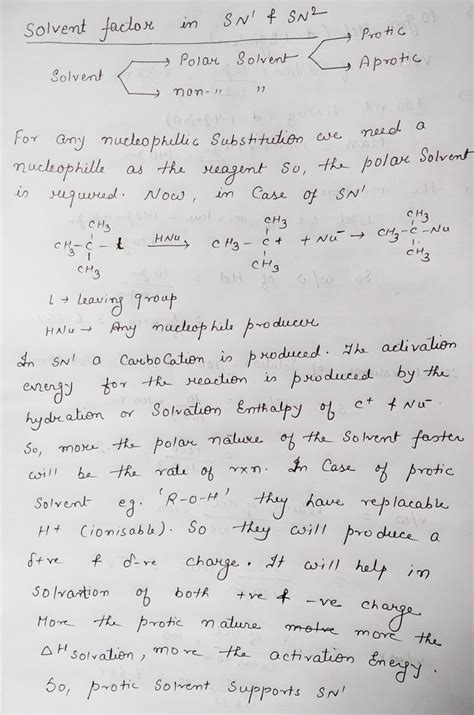 Solvent factor in SN¹ & SN²
Solvent → Polar Solvent → Protic
→ Aprotic
→ non-〃 〃
For any nucleophillic Substitution we need a
nucleophille as the reagent So, the polar Solvent
is required. Now, in Case of SN¹
CH₃ CH₃ CH₃
CH₃-C-L HNu→ CH₃-C+ + Nu⁻ → CH₃-C-Nu
CH₃ CH₃ CH₃
L → leaving group
HNu → Any nucleophile producer
In SN¹ a Carbocation is produced. The activation
energy for the reaction is produced by the
hydration or Solvation Enthalpy of C⁺ & Nu⁻.
So, more the polar nature of the Solvent faster
will be the rate of rxn. In Case of protic
Solvent eg. 'R-O-H' they have replacable
H+ (ionisable). So they will produce a
δ+ve & δ-ve charge. It will help in
Solvation of both +ve & -ve charge
More the protic nature more the
ΔH Solvation, more the activation Energy.
So, protic Solvent Supports SN¹